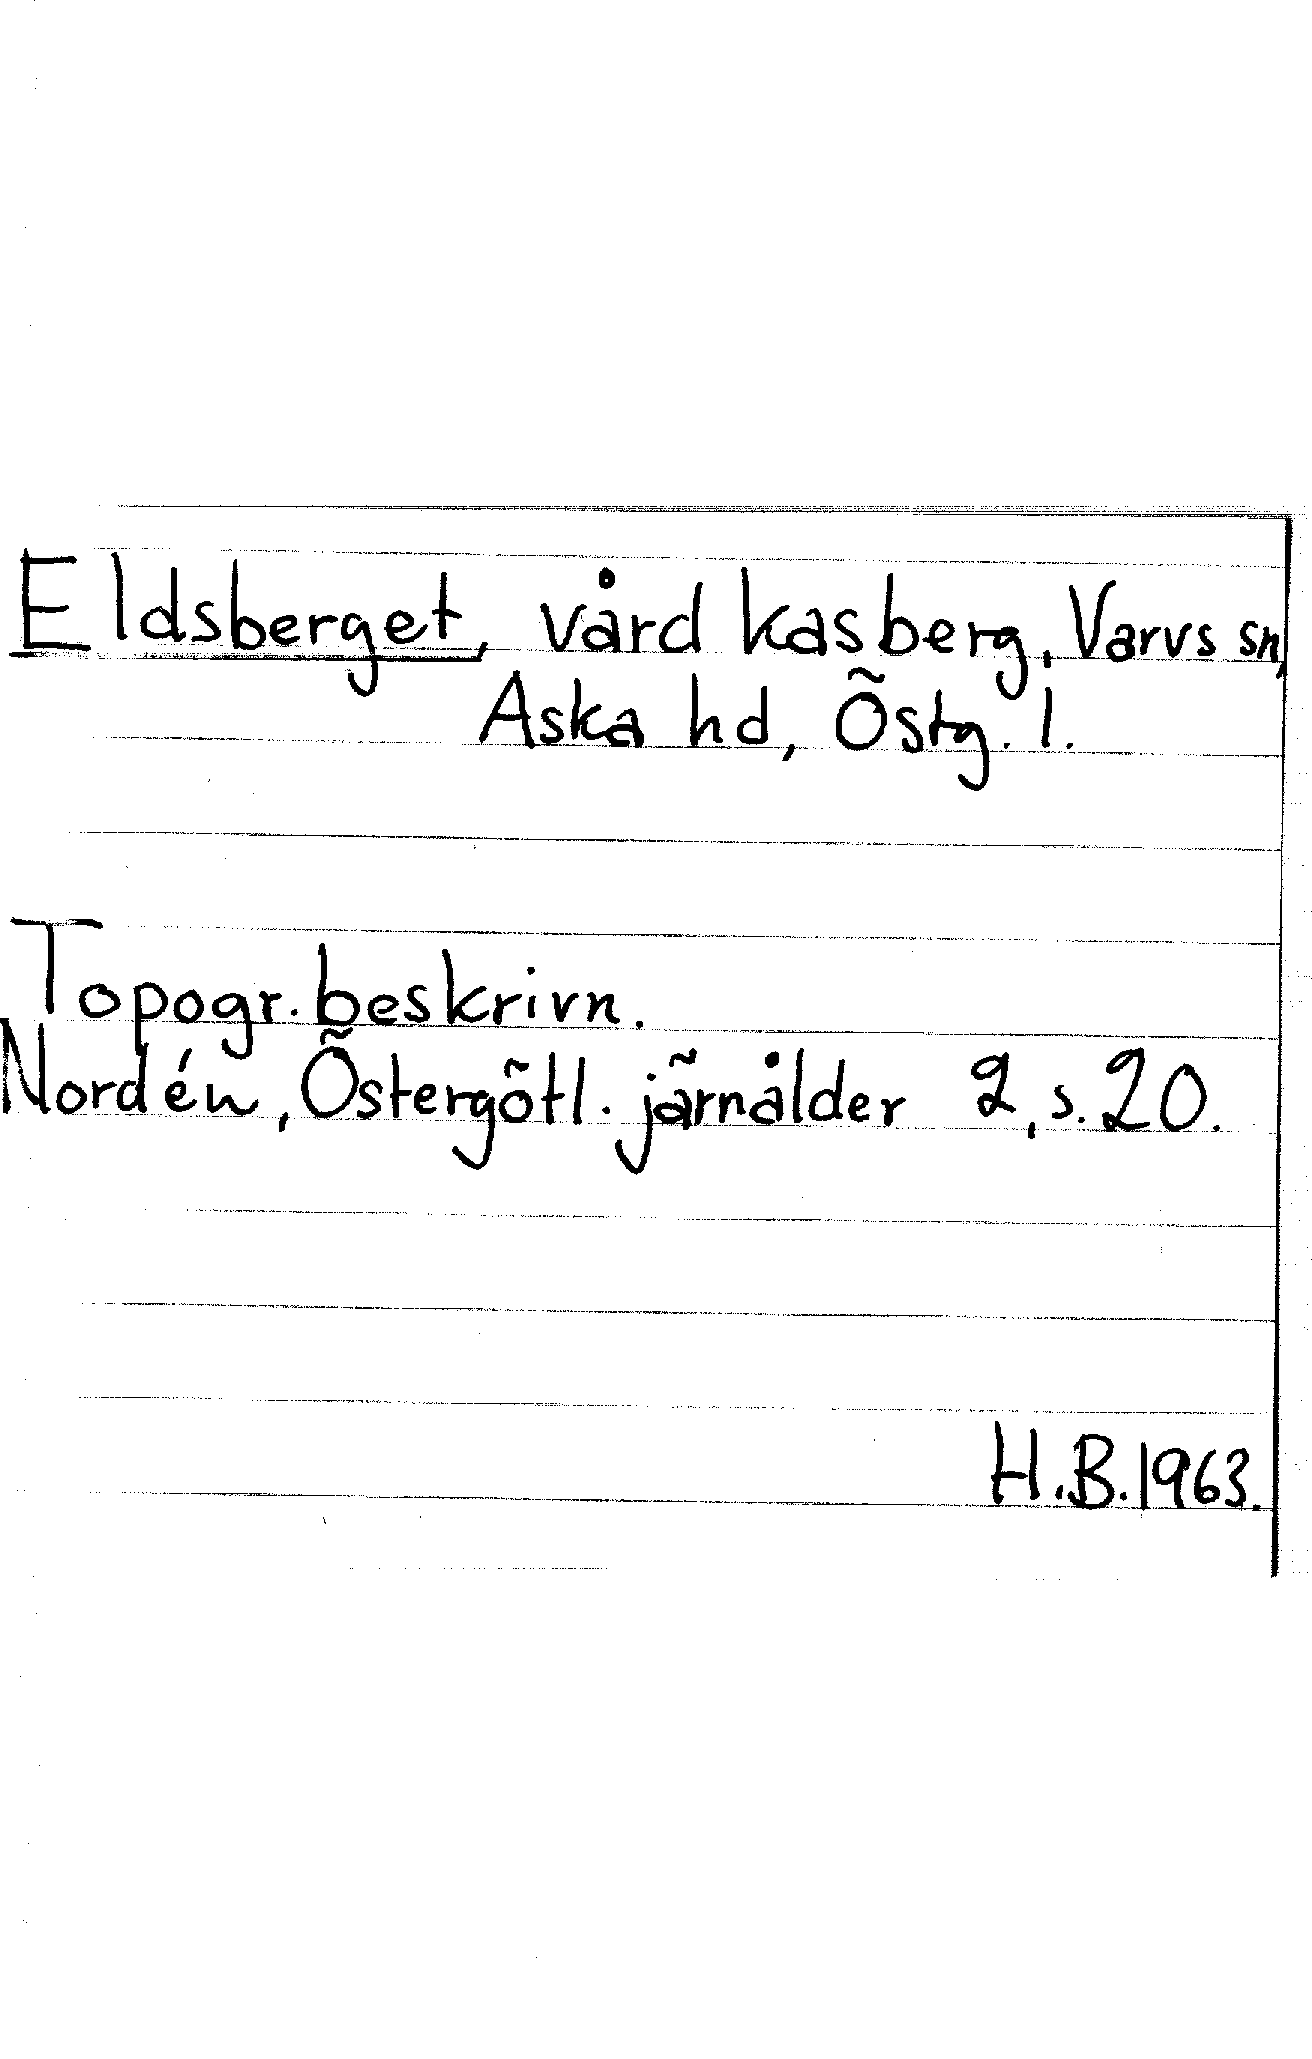 Eldsberget, vård kasberg, Varvs sn,
Aska hd, Östg. l.
Topogr. beskrivn.
Nordén, Östergötl. järnålder 2, s. 20.
H.B. 1963.